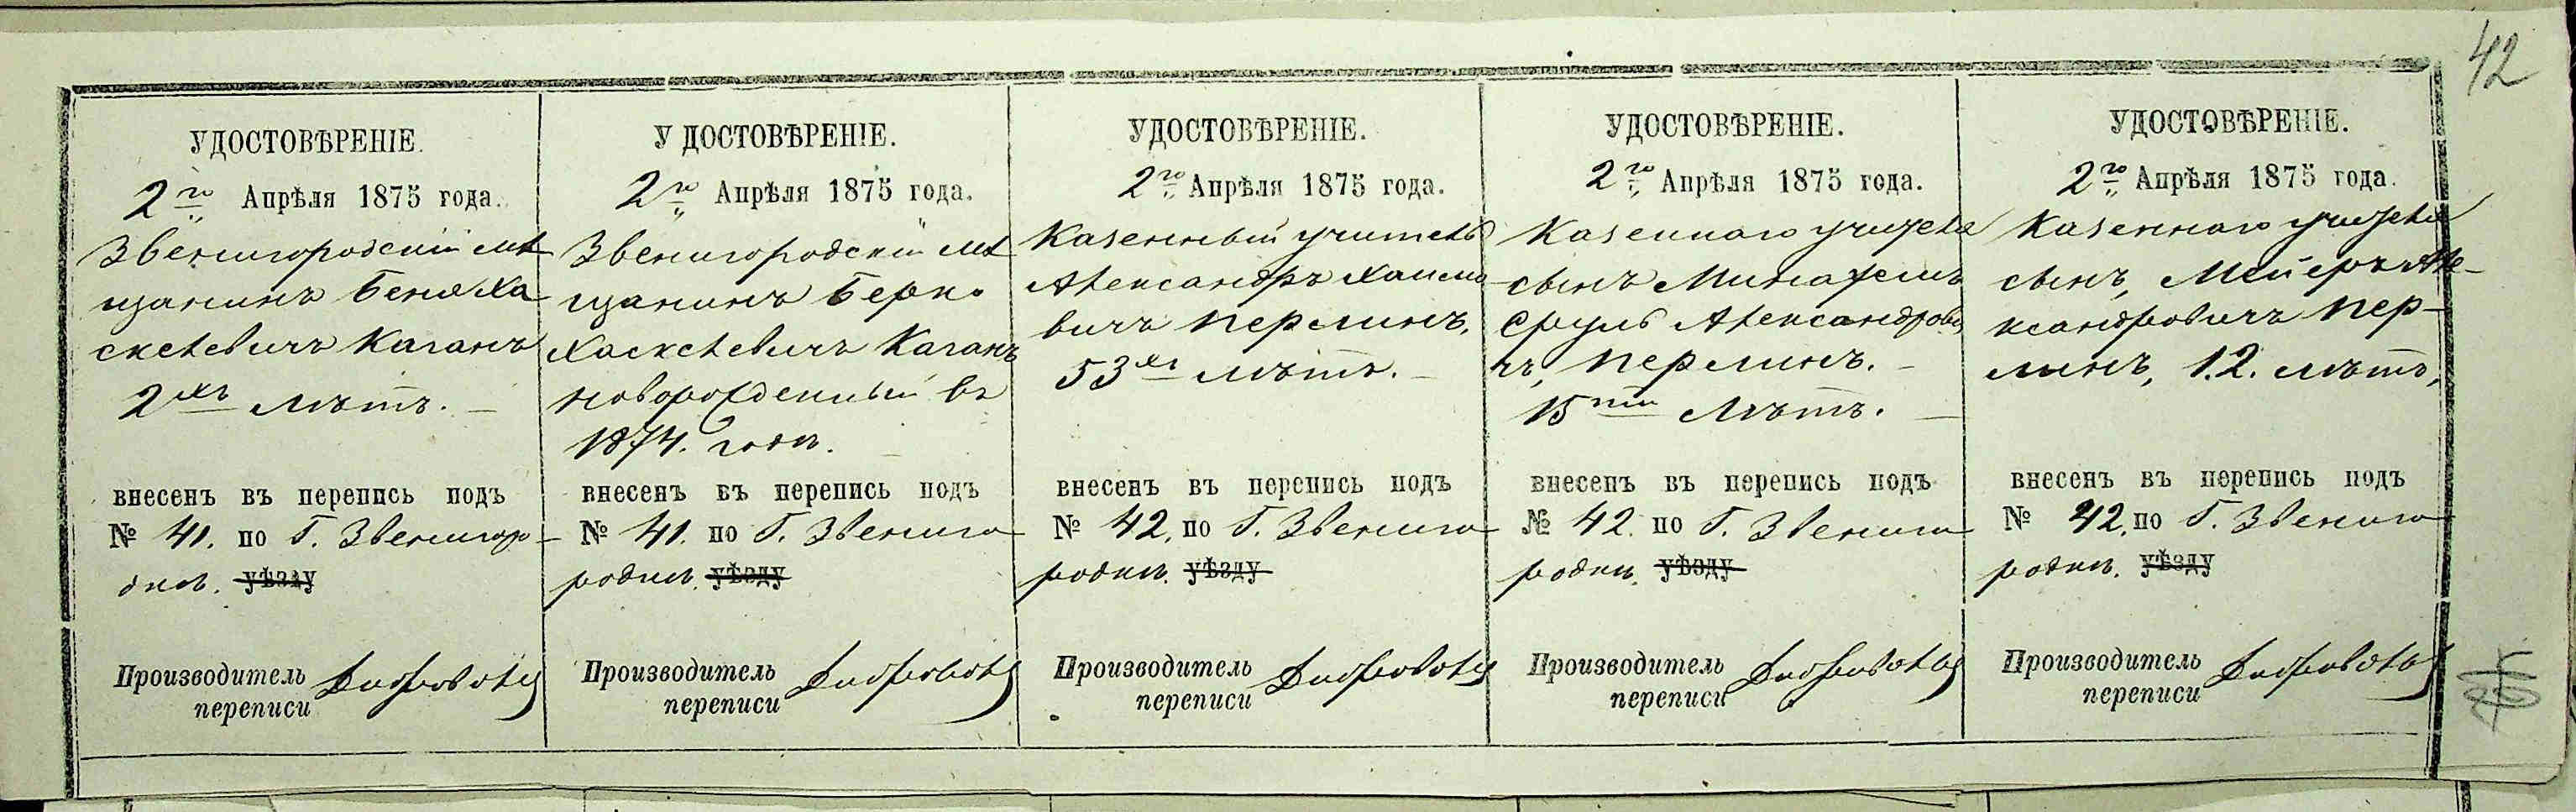 42
УДОСТОВѢРЕНІЕ.
2го Апрѣля 1875 года.
Звенигородскій мѣ
щанинъ Беню Ха
скелевичъ Каганъ
2хъ лѣтъ. —
внесенъ въ перепись подъ
№ 41. по Г. Звенигоро-
дкѣ. уѣзду
Производитель
переписи
У ДОСТОВѢРЕНІЕ.
2го Апрѣля 1875 года.
Звенигородскій мѣ
щанинъ Берко
Хаскелевичъ Каганъ
новорожденный въ
1874. году.
внесенъ въ перепись подъ
№ 41. по Г. Звениго
родкѣ. уѣзду
Производитель
переписи
УДОСТОВѢРЕНІЕ.
2го Апрѣля 1875 года.
Казенный учитель
Александръ Хаимо-
вичъ Перлинъ.
53хъ лѣтъ. —
внесенъ въ перепись подъ
№ 42. по Г. Звениго
родкѣ. уѣзду
Производитель
переписи
УДОСТОВѢРЕНІЕ.
2го Апрѣля 1875 года.
Казеннаго учителя
сынъ
Сруль Александрови
чъ, Перлинъ. —
15ти лѣтъ. —
внесенъ въ перепись подъ
№ 42. по Г. Звениго
родкѣ. уѣзду
Производитель
переписи
УДОСТОВѢРЕНІЕ.
2го Апрѣля 1875 года.
Казеннаго учителя
сынъ, Мейеръ Але-
ксандровичъ Пер-
линъ, 12. лѣтъ,
внесенъ въ перепись подъ
№ 42. по Г. Звениго
родкѣ. уѣзду
Производитель
переписи